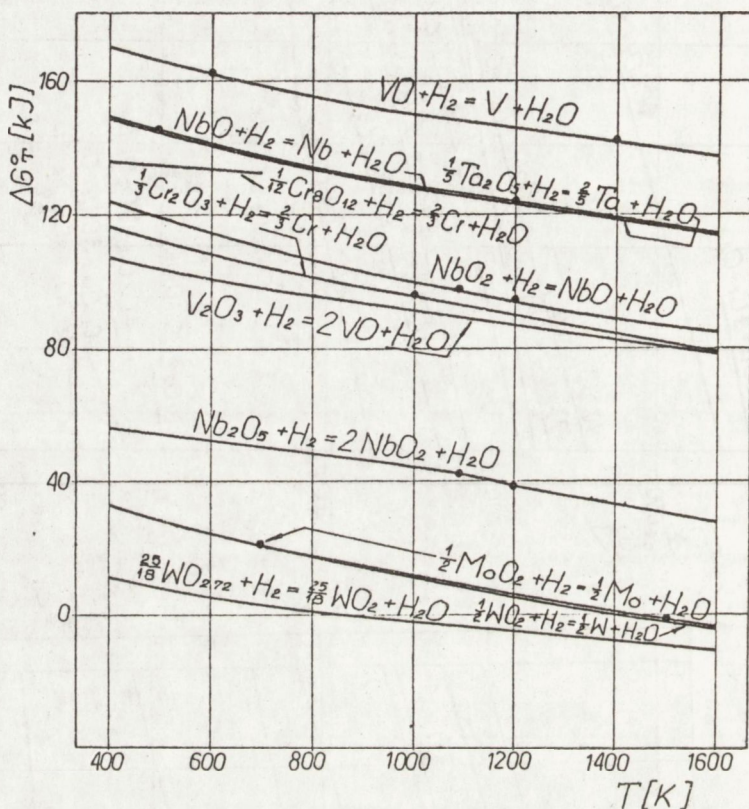 ΔG°T [kJ]
160
120
80
40
0
VO + H₂ = V + H₂O
NbO + H₂ = Nb + H₂O
1/5 Ta₂O₅ + H₂ = 2/5 Ta + H₂O
1/12 Cr₈O₁₂ + H₂ = 2/3 Cr + H₂O
1/3 Cr₂O₃ + H₂ = 2/3 Cr + H₂O
NbO₂ + H₂ = NbO + H₂O
V₂O₃ + H₂ = 2VO + H₂O
Nb₂O₅ + H₂ = 2 NbO₂ + H₂O
1/2 MoO₂ + H₂ = 1/2 Mo + H₂O
25/18 WO2.72 + H₂ = 25/18 WO₂ + H₂O
1/2 WO₂ + H₂ = 1/2 W + H₂O
400 600 800 1000 1200 1400 1600
T [K]